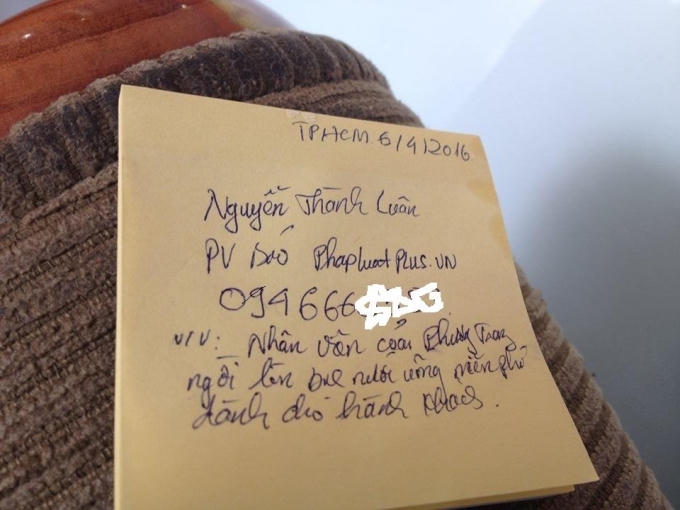 TPHCM 6/4/2016
Nguyễn Thành Luân
PV báo Phapluatplus.vn
094666
V/V: Nhân viên của Phương Trang
ngồi lên bục nước uống miễn phí
dành cho hành khách.